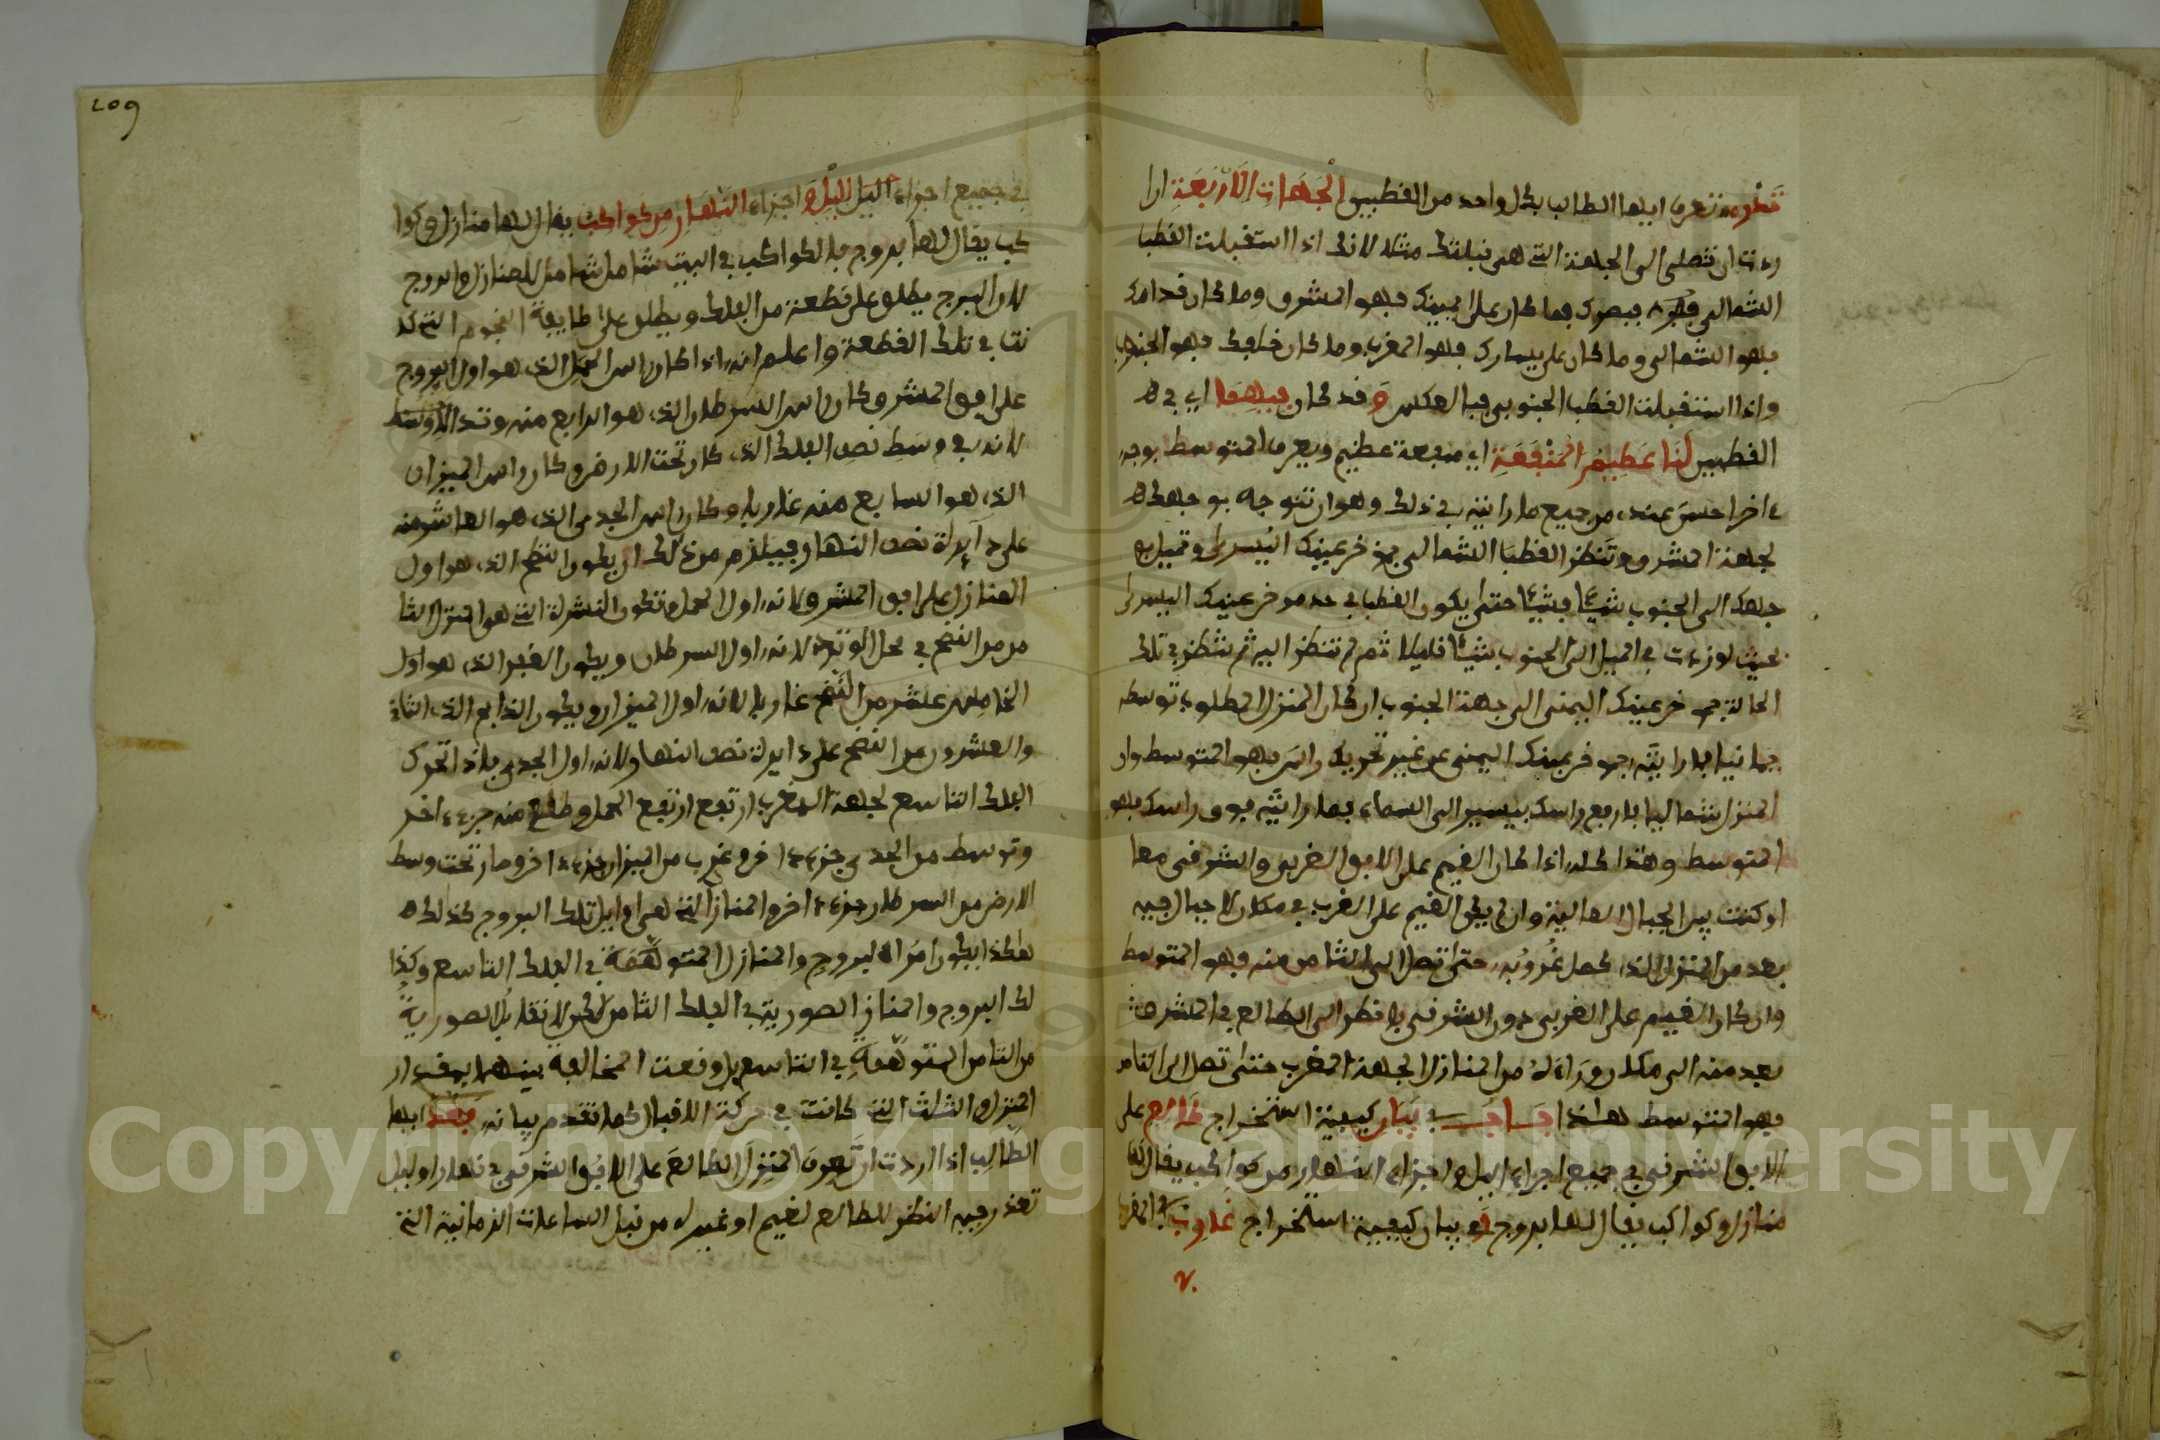 تعرف ايها الطالب بكل واحد من القطبين الجهات الاربعة اذا
ردت ان تصلي الى الجهة التي هي قبلتك مثلا لانك اذا استقبلت القطب
الشمالي ببصرك فما كان على يمينك فهو المشرق وما كان قدامك
فهو الشمالي وما كان على يسارك فهو المغرب وما كان خلفك فهو الجنوب
واذا استقبلت القطب الجنوبي فبالعكس وقد كان فيهما اي في
القطبين لنا عظيم المنفعة اي منفعة عظيم ويعرف المتوسط بوجه
ءاخر احسن عند من جميع ما رايته في ذلك وهو ان تتوجه بوجهك
لجهة المشرق وتنظر القطب الشمالي بمؤخر عينك اليسرى وتميل
جهك الى الجنوب شيئا فشيئا حتى يكون القطب في حد موخر عينك اليسرى
بحيث لو زدت في الميل الى الجنوب شيئا قليلا ثم لم تنظر اليه ثم تنظر في تلك
الحالة خر عينك اليمنى الى جهة الجنوب ان كان المنزل المطلوب توسطه
يمانيا فما رايته خر عينك اليمنى من غير تحريك راس فهو المتوسط وان
المنزل شماليا فارفع راسك بيسير الى السماء فما رايته فوق راسك فهو
المتوسط وهذا كله اذا كان الغيم على الافق الغربي والشرقي معا
او كنت بين الجبال العالية وان لم يكن الغيم على الغرب في مكان لا جبال فيه
بعد من المنزل الذي كمل غروبه حتى تصل الى الثامن منه فهو المتوسط
وان كان الغيم على الغربي دون الشرقي فانظر الى الطالع في المشرق
بعد منه الى مكان وراءه من المنازل لجهة المغرب حتى تصل الى الثامن
فهو المتوسط هذا باب في بيان كيفية استخراج طالع على
الافق الشرقي في جميع اجزاء اليل واجزاء النهار من كواكب يقال لها
منازل وكواكب يقال لها بروج وبيان كيفية استخراج غارب في المغرب
٧.
209
في جميع اجزاء اليل الليل واجزاء النهار من كواكب يقال لها منازل وكوا
كب يقال لها بروج فالكواكب في البيت شامل للمنازل والبروج
لان البرج يطلق على قطعة من الفلك ويطلق على طايفة النجوم التي كا
نت في تلك القطعة واعلم انه اذا كان راس الحمل الذي هو اول البروج
على افق المشرق كان راس السرطان الذي هو الرابع منه وتد الاوسط
لانه في وسط نصف الفلك الذي كان تحت الارض وكان راس الميزان
الذي هو السابع منه غاربا وكان راس الجدي الذي هو العاشر منه
على دايرة نصف النهار فيلزم من ذلك ان يكون النطح الذي هو اول
المنازل على افق المشرق لانه اول الحمل وتكون النثرة التي هو المنزل الثا
من من النطح في محل الوتد لانه اول السرطان ويكون الغفر الذي هو اول
الخامس عشر من النطح غاربا لانه اول الميزان ويكون الذابح الذي الثاني
والعشرون من النطح على دايرة نصف النهار لانه اول الجدي فاذا تحرك
الفلك التاسع لجهة المغرب ارتفع الحمل وطلع منه جزء ءاخر
وتوسط من الجدي جزء ءاخر وغرب من الميزان جزء ءاخر وصار تحت وسط
الارض من السرطان جزء ءاخر والمنازل التي هي اوايل تلك البروج كذلك
هكذا يكون امر البروج والمنازل المتوهمة في الفلك التاسع وكذا
لك البروج والمنازل الصورية في الفلك الثامن لكن لا تقابل الصورية
من الثامن المتوهمة في التاسع بل وقعت المخالفة بينهما بمقدار
المنزل والثلث التي كانت في حركة الاقبال كما تقدم بيانه ايها
الطالب اذا اردت ان تعرف المنزل الطالع على الافق الشرقي في نهار او ليل
تعذر فيه النظر للطالع لغيم او غيره من قبل الساعات الزمانية التي
Copyright © King Saud University